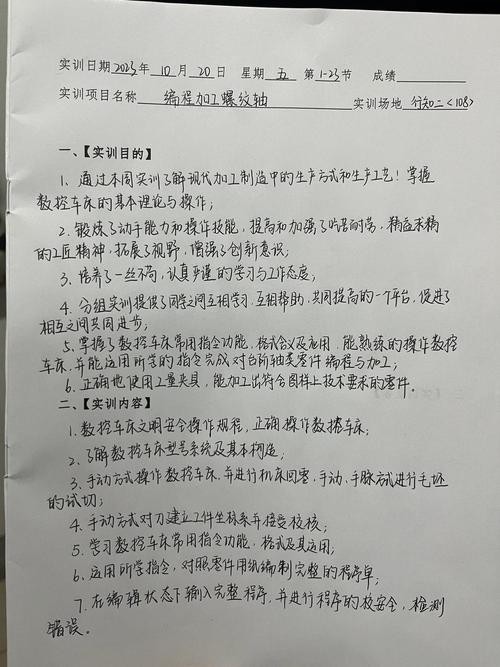 实训日期2023年 10 月 20 日 星期 五 第 1-23 节 成绩
实训项目名称 编程加工螺纹轴 实训场地 行知二<108>
一、【实训目的】
1、通过本周实训了解现代加工制造中的生产方式和生产工艺!掌握
数控车床的基本理论与操作;
2、锻炼了动手能力和操作技能,提高和加强了吃苦耐劳,精益求精
的工匠精神,拓展了视野,增强了创新意识;
3、培养了一丝不苟,认真严谨的学习与工作态度;
4、分组实训提供了同学之间互相学习,互相帮助,共同提高的一个平台,促进了
相互之间共同进步;
5、掌握了数控车床常用指令功能、格式含义及应用,能熟练的操作数控
车床,并能运用所学的指令完成对台阶轴类零件编程与加工;
6、正确地使用工量夹具,能加工出符合图样上技术要求的零件。
二、【实训内容】
1、数控车床文明安全操作规程,正确操作数控车床;
2、了解数控车床型号系统及其基本构造;
3、手动方式操作数控车床,并进行机床回零、手动、手脉方式进行毛坯
的试切;
4、手动方式对刀建立工件坐标系并接受校核;
5、学习数控车床常用指令功能,格式及其运用;
6、运用所学指令,对照零件用纸编制完整的程序单;
7、在编辑状态下输入完整程序,并进行程序的校安全,检测
错误。